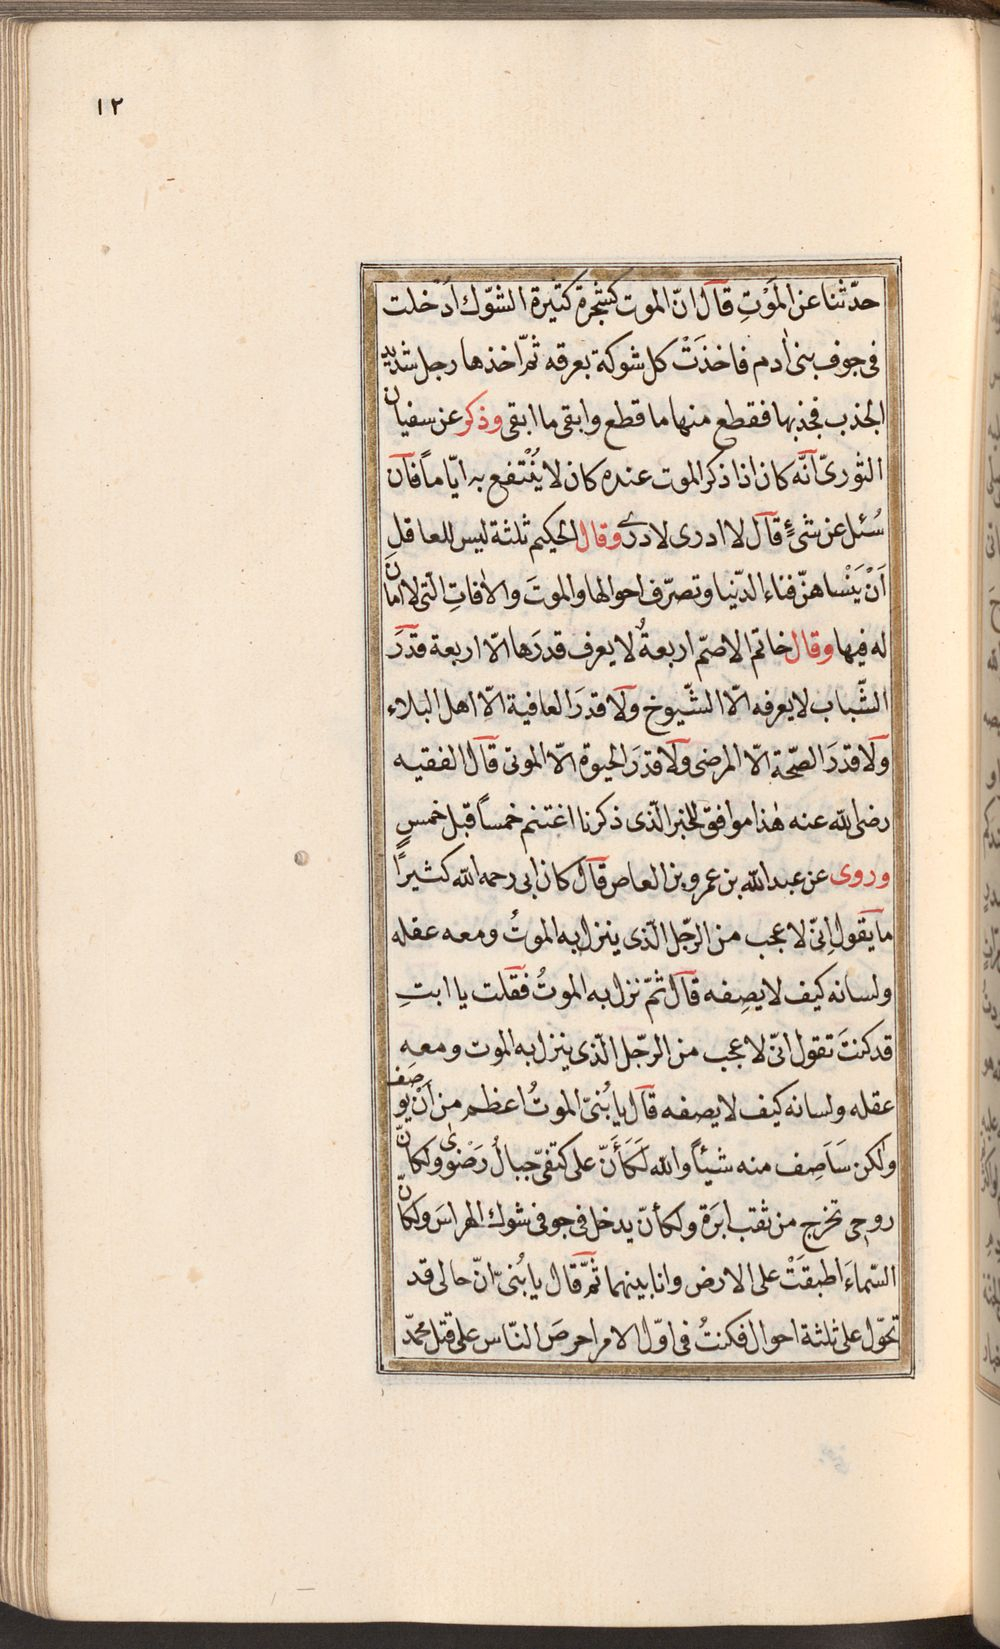 ١٢
حدّثنا عن المَوْتِ قال انّ الموت كشجرة كثيرة الشّوك اُدْخلت
فى جوف بنى اٰدم فاخذَتْ كل شوكة بعرقه ثمّ اخذها رجل شديد
الجذب فجذبها فقطع منها ما قطع وابقى ما ابقى وذكر عن سفيان
الثورىّ انّه كان اذا ذكر الموت عنده كان لا يُنْتفع به ايّاماً فان
سُئل عن شئٍ قال لا ادرى لا درى وقال الحكيم ثلثة ليس للعاقل
اَنْ يَنْساهنّ فناء الدّنيا وتصرّف احوالها والموتَ والاٰفاتِ الّتى لا امانَ
له فيها وقال خاتم الاصمّ اربعةٌ لا يعرف قدرَها الّا اربعة قدْرَ
الشّباب لا يعرفه الّا الشّيوخ ولا قدرَ العافية الّا اهل البلاء
ولا قدرَ الصّحّة الّا المرضى ولا قدرَ الحيوة الّا الموتى قال الفقيه
رضى الله عنه هٰذا موافق للخبر الّذى ذكرنا اغتنم خمساً قبل خمسٍ
وروى عن عبد الله بن عمرو بن العاص قال كان ابى رحمه الله كثيرًا
ما يقول اِنّى لاعجب من الرجّل الّذى ينزل به الموتُ ومعه عقله
ولسانه كيف لا يصِفه قال ثمّ نزل به الموتُ فقلت يا ابتِ
قد كنتَ تقول انّى لاعجب من الرجّل الّذى ينزل به الموت ومعه
عقله ولسانه كيف لا يصفه قال يا بُنىّ الموتُ اعظم من اَنْ يوصف
ولٰكن سَاَصِف منه شيئاً والله لَكَأَنَّ على كتفىّ جبالُ رَضْوٰى ولكانّ
روحى تخرج من ثقب ابرَة ولكأنّ يدخل فى جوفى شوك الهراسَ ولكانّ
السّماءَ اطبقَتْ على الارض وانا بينهما ثمّ قال يا بُنىّ انّ حالى قد
تحوّل على ثلثة احوال فكنتُ فى اوّل الامر احرصَ النّاس على قتل محمّد